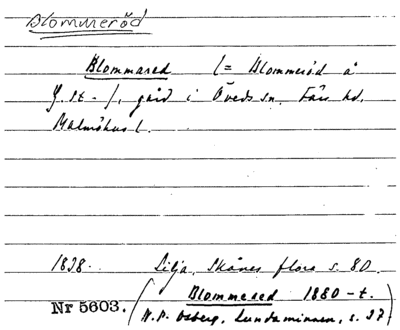 Blommeröd
Blommared (= Blommeröd å
g.st-), gård i Öveds sn. Färs hd.
Malmöhus l.
1838. Lilja, Skånes flora s. 80.
(Blommered 1880-t.
Nr 5603. N.P. Osberg, Lundaminnen, s. 27)